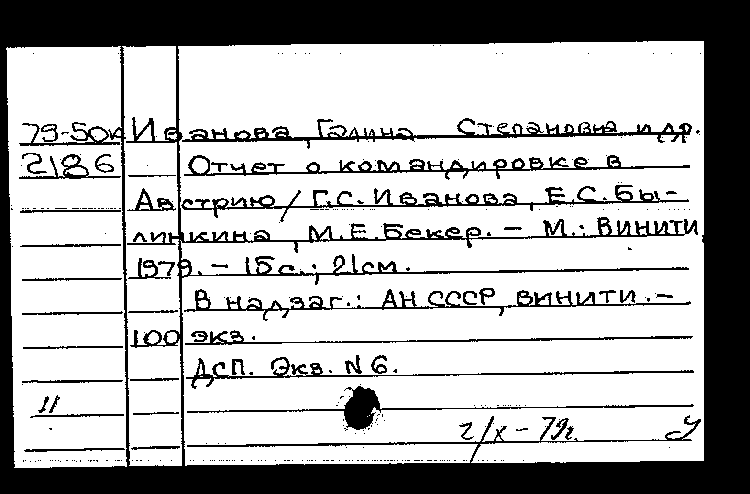 79-50к Иванова, Галина Степановна и др.
2186 Отчет о командировке в
Австрию / Г.С. Иванова, Е.С. Бы-
линкина, М.Е. Бекер. – М.: ВИНИТИ,
1979. – 15с.; 21см.
В надзаг.: АН СССР, ВИНИТИ. –
100 экз.
ДСП. Экз. N 6.
11
2/х – 79г. У